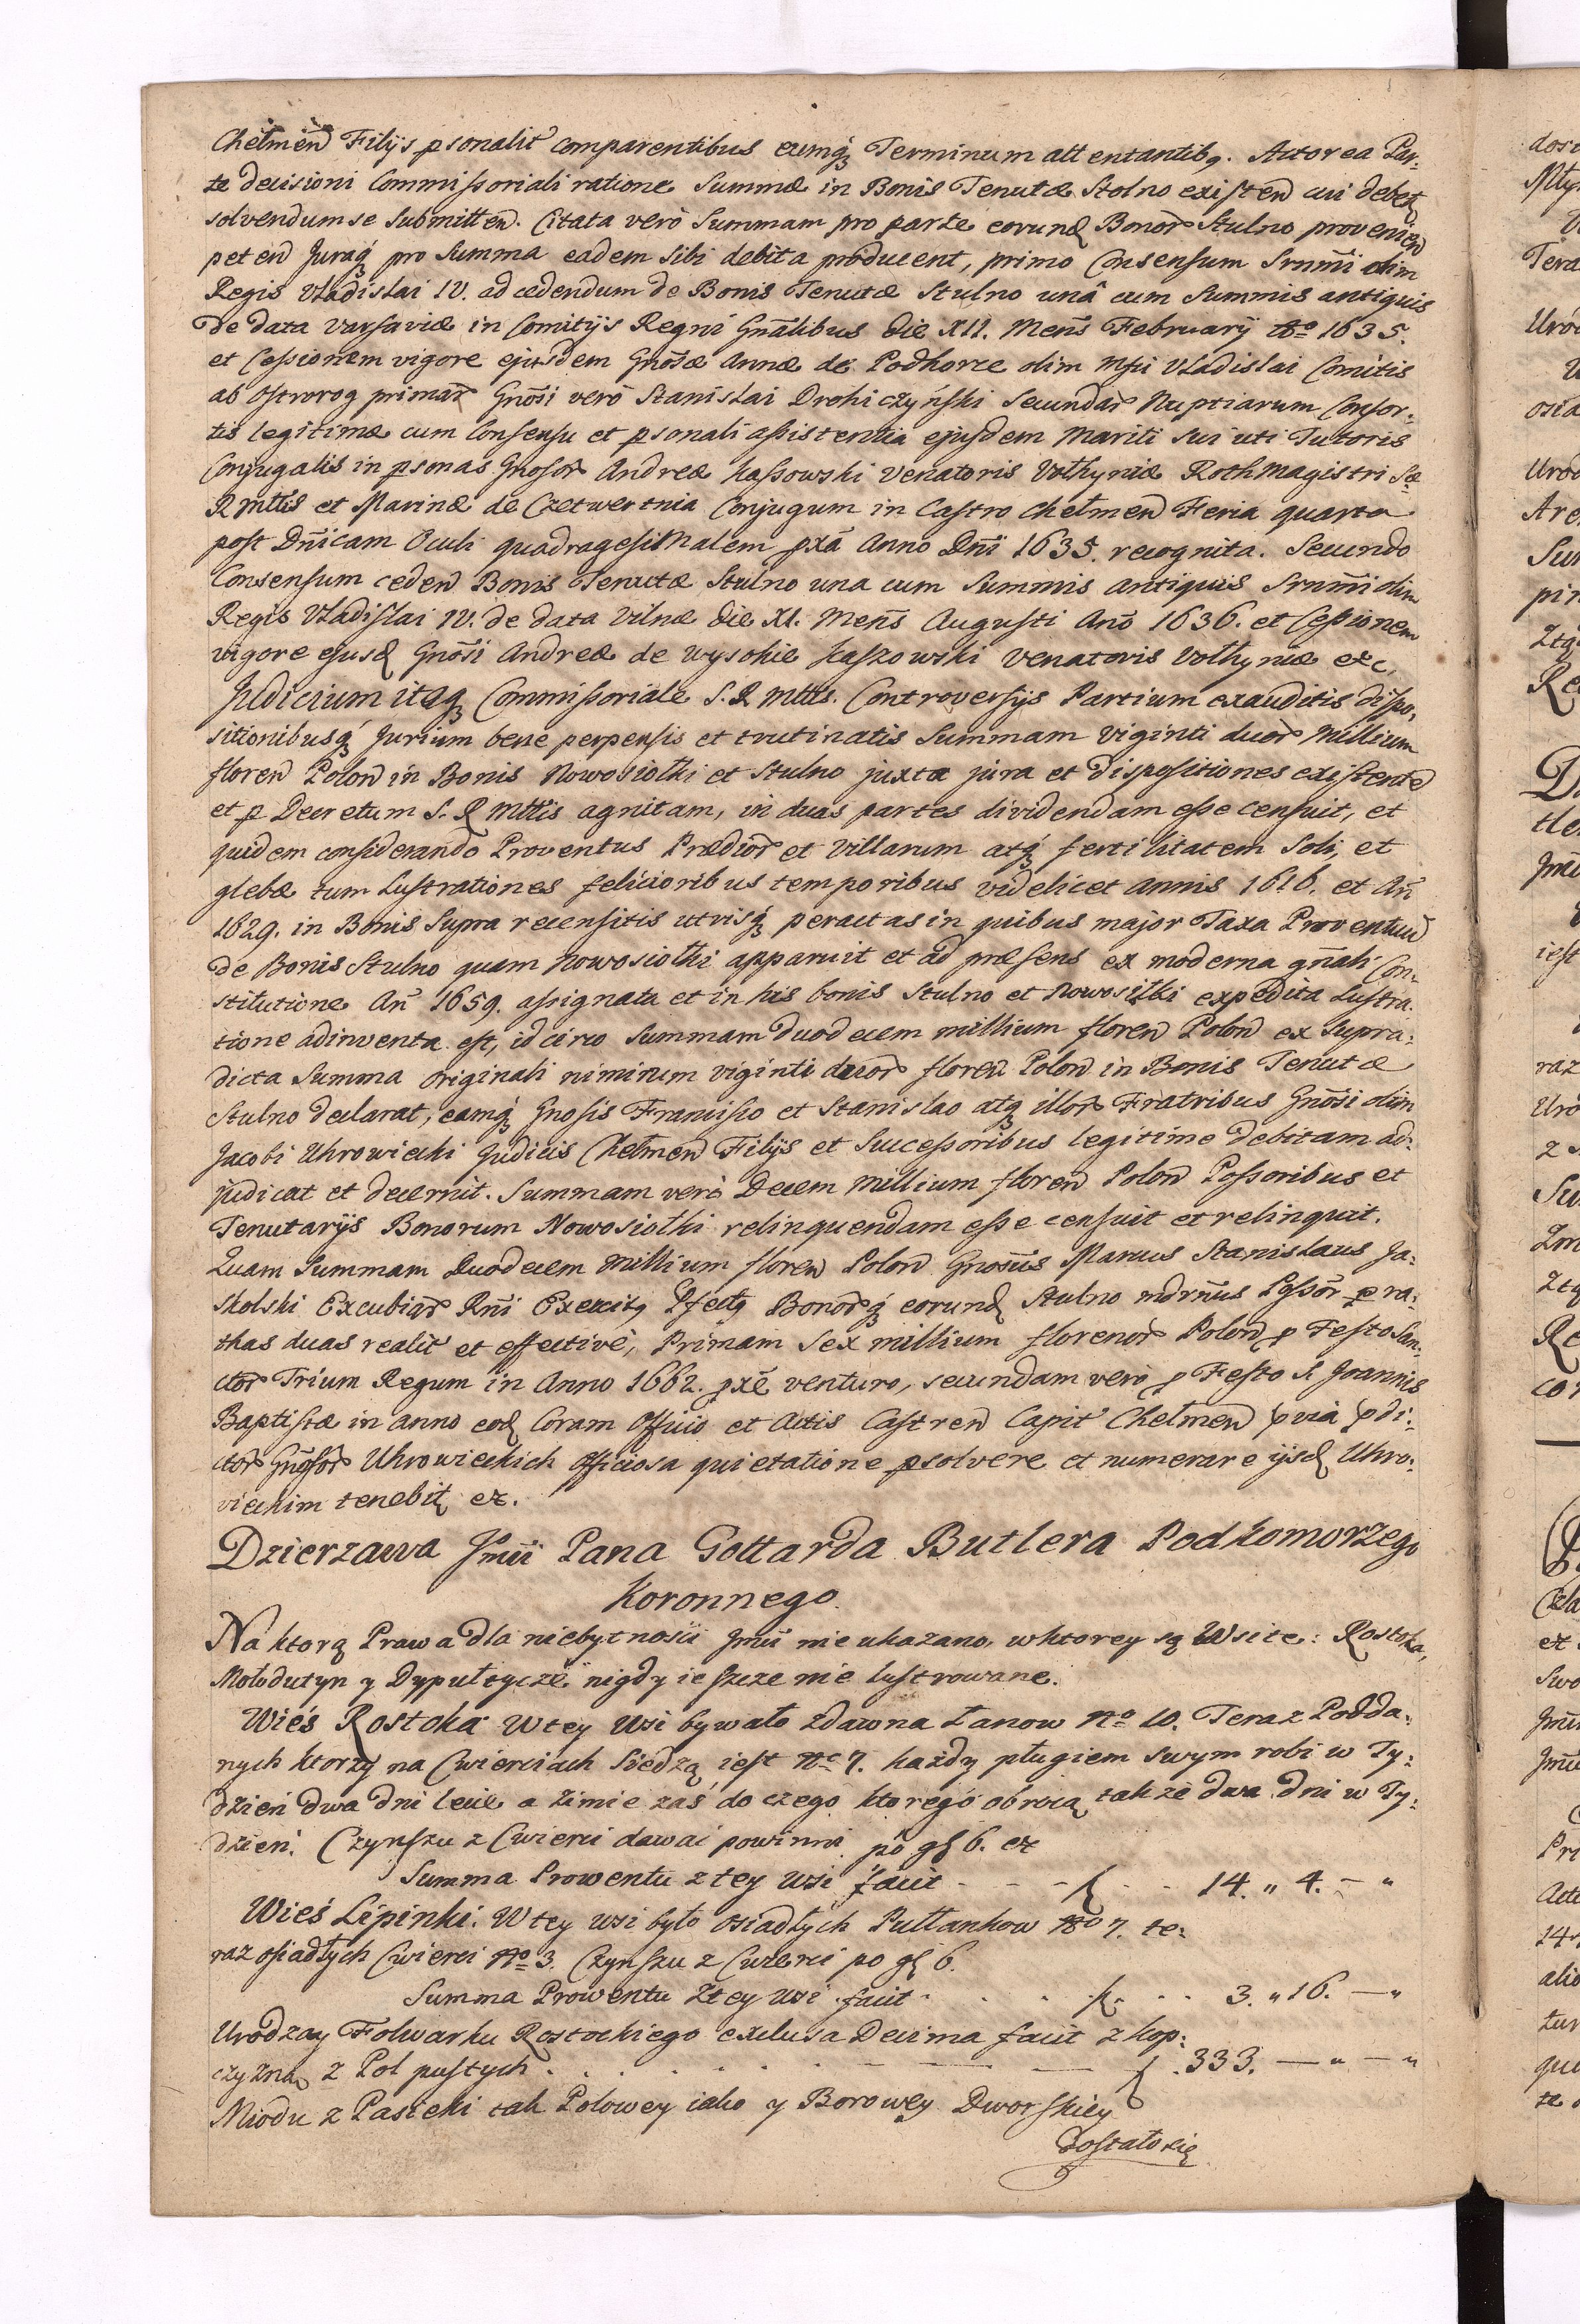 Chełmen̄ Filijs ꝑsonalit̄ comparentibus eumq́ꝫ Terminum attentantibꝫ. Actorea Par-
te decisioni Commissoriali ratione Summæ in Bonis Tenutæ Stolno existen̄ cui debet̄
solvendum se submitten̄. Citata verò Summam pro parte eorund̄ Bonor̄ Stulno provenien̄
peten̄ Juraq́ꝫ pro Summa eadem sibi debita producent, primo Consensum Srnm̄i olim
Regis Vladislai IV. ad cedendum de Bonis Tenutæ Stulno unâ cum Summis antiquis
de data Varsaviæ in Comitijs Regni Gn̄alibus die XII. Men̄s February Ao 1635.
et Cessionem vigore ejusdem Gnōsæ Annæ de Podhorze olim Mfci Vladislai Comitis
ab Ostrorog primar̄ Gnōsi verò Stanislai Drohiczyński Secundar̄ Nuptiarum Consor-
tis legitimæ cum Consensu et ꝑsonali assistentia ejusdem Mariti sui uti Tutoris
Conjugalis in ꝑsonas Gnosor̄ Andreæ Kassowski Venatoris Volhyniæ Rothmagistri Sæ
R Mttis et Marinæ de Czetwertnia Conjugum in Castro Chełmen̄ Feria quarta
post Dn̄icam Oculi quadragesimalem ꝓxā Anno Dn̄i 1635. recognita. Secundo
Consensum ceden̄ Bonis Tenutæ Stulno una cum Summis antiquis Srnm̄i olim
Regis Vladislai IV. de data Vilnæ die XI. Men̄s Augusti An̄o 1636. et Cessionem
vigore ejusd̄ Gnōsi Andreæ de Wysokie Kaszowski Venatoris Volhyniæ etc.
Judicium itaqꝫ Commissoriale S. R Mttis. Controversijs Partium exauditis dispo-
sitionibusq́ꝫ Jurium bene perpensis et trutinatis Summam viginti duor̄ Millium
floren̄ Polon̄ in Bonis Nowosiołki et Stulno juxta jura et dispositiones existente
et ꝑ Decretum S. R Mttis agnitam, in duas partes dividendam esse censuit, et
quidem considerando Proventus Prædior̄ et Villarum atq́ꝫ fertilitatem Soli, et
glebæ tum Lustrationes felicioribus temporibus videlicet Annis 1616. et An̄
1629. in Bonis supra recensitis utrisq́ꝫ peractas in quibus major Taxa Proventuu̅
de Bonis Stulno quam Nowosiołki apparuit et ad præsens ex moderna gn̄ali Con-
stitutione An̄ 1659. assignata et in his bonis Stulno et Nowosiłki expedita Lustra-
tione adinventa est, idcirco Summam duodecem millium floren̄ Polon̄ ex Supra-
dicta Summa originali nimirum viginti duor̄ floren̄ Polon̄ in Bonis Tenutæ
Stulno declarat, eamq́ꝫ Gnosis Francisco et Stanislao atqꝫ illor̄ Fratribus Gnōsi olim
Jacobi Uhrowiecki Judicis Chełmen̄ Filijs et Successoribus legitime debitam ad-
judicat et decernit. Summam verò Decem Millium floren̄ Polon̄ Possoribus et
Tenutarijs Bonorum Nowosiołki relinquendam esse censuit et relinquit.
Quam Summam Duodecem Millium floren̄ Polon̄ Gnosus Marcus Stanislaus Ja-
skolski Excubiar̄ Rn̄i Exercitꝫ Pfectꝫ Bonorq́ꝫ eorund̄ Stulno mdrnus Possōr ꝑ ra-
thas duas realit̄ et effectivè, Primam Sex millium florenor̄ Polon̄ ꝓ Festo San-
ctor̄ Trium Regum in Anno 1662. ꝓxē venturo, secundam verò ꝓ Festo S. Joannis
Baptistæ in anno eod̄ Coram Officio et Actis Castren̄ Capit̄ Chełmen̄ p̄via p̄di-
ctor̄ Gnosor̄ Uhrowieckich Officiosa quietatione ꝑsolvere et numerare ijsd̄ Uhro-
vieckim tenebit̄ etc.
Dzierzawa Jmci Pana Gottarda Butlera Podkomorzego
Koronnego.
Na ktorą Prawa dla niebytnosci Jmci nie ukazano, w ktorey są Wsi te: Rostoka,
Mołodutyn y Dypułtycze nigdy ieszcze nie lustrowane.
Wieś Rostoka W tey Wsi bywało zdawna Łanow No 10. Teraz Podda-
nych ktorzy na Cwierciach siedzą iest No 7. każdy pługiem swym robi w Ty-
dzień dwa dni lecie a zimie zaś do czego ktorego obrocą także dwa dni w Ty-
dzień. Czynszu z Cwierci dawać powinni po gł 6. etc
Summa Prowentu z tey Wsi facit - - - f. - - 14. „ 4. - „
Wieś Lipinki. W tey Wsi było osiadłych Pułłankow No 7. te-
raz osiadłych Cwierci No 3. Czynszu z Cwierci po gł 6.
Summa Prowentu z tey Wsi facit . . . . f. . . 3. „ 16. — „
Urodzay Folwarku Rostockiego exclusa Decima facit z kop-
czyzną z Pol pustych . . . . . — — — f. 333. — „ — „
Miodu z Pasieki tak Polowey iako y Borowey Dworskiey
dostało się